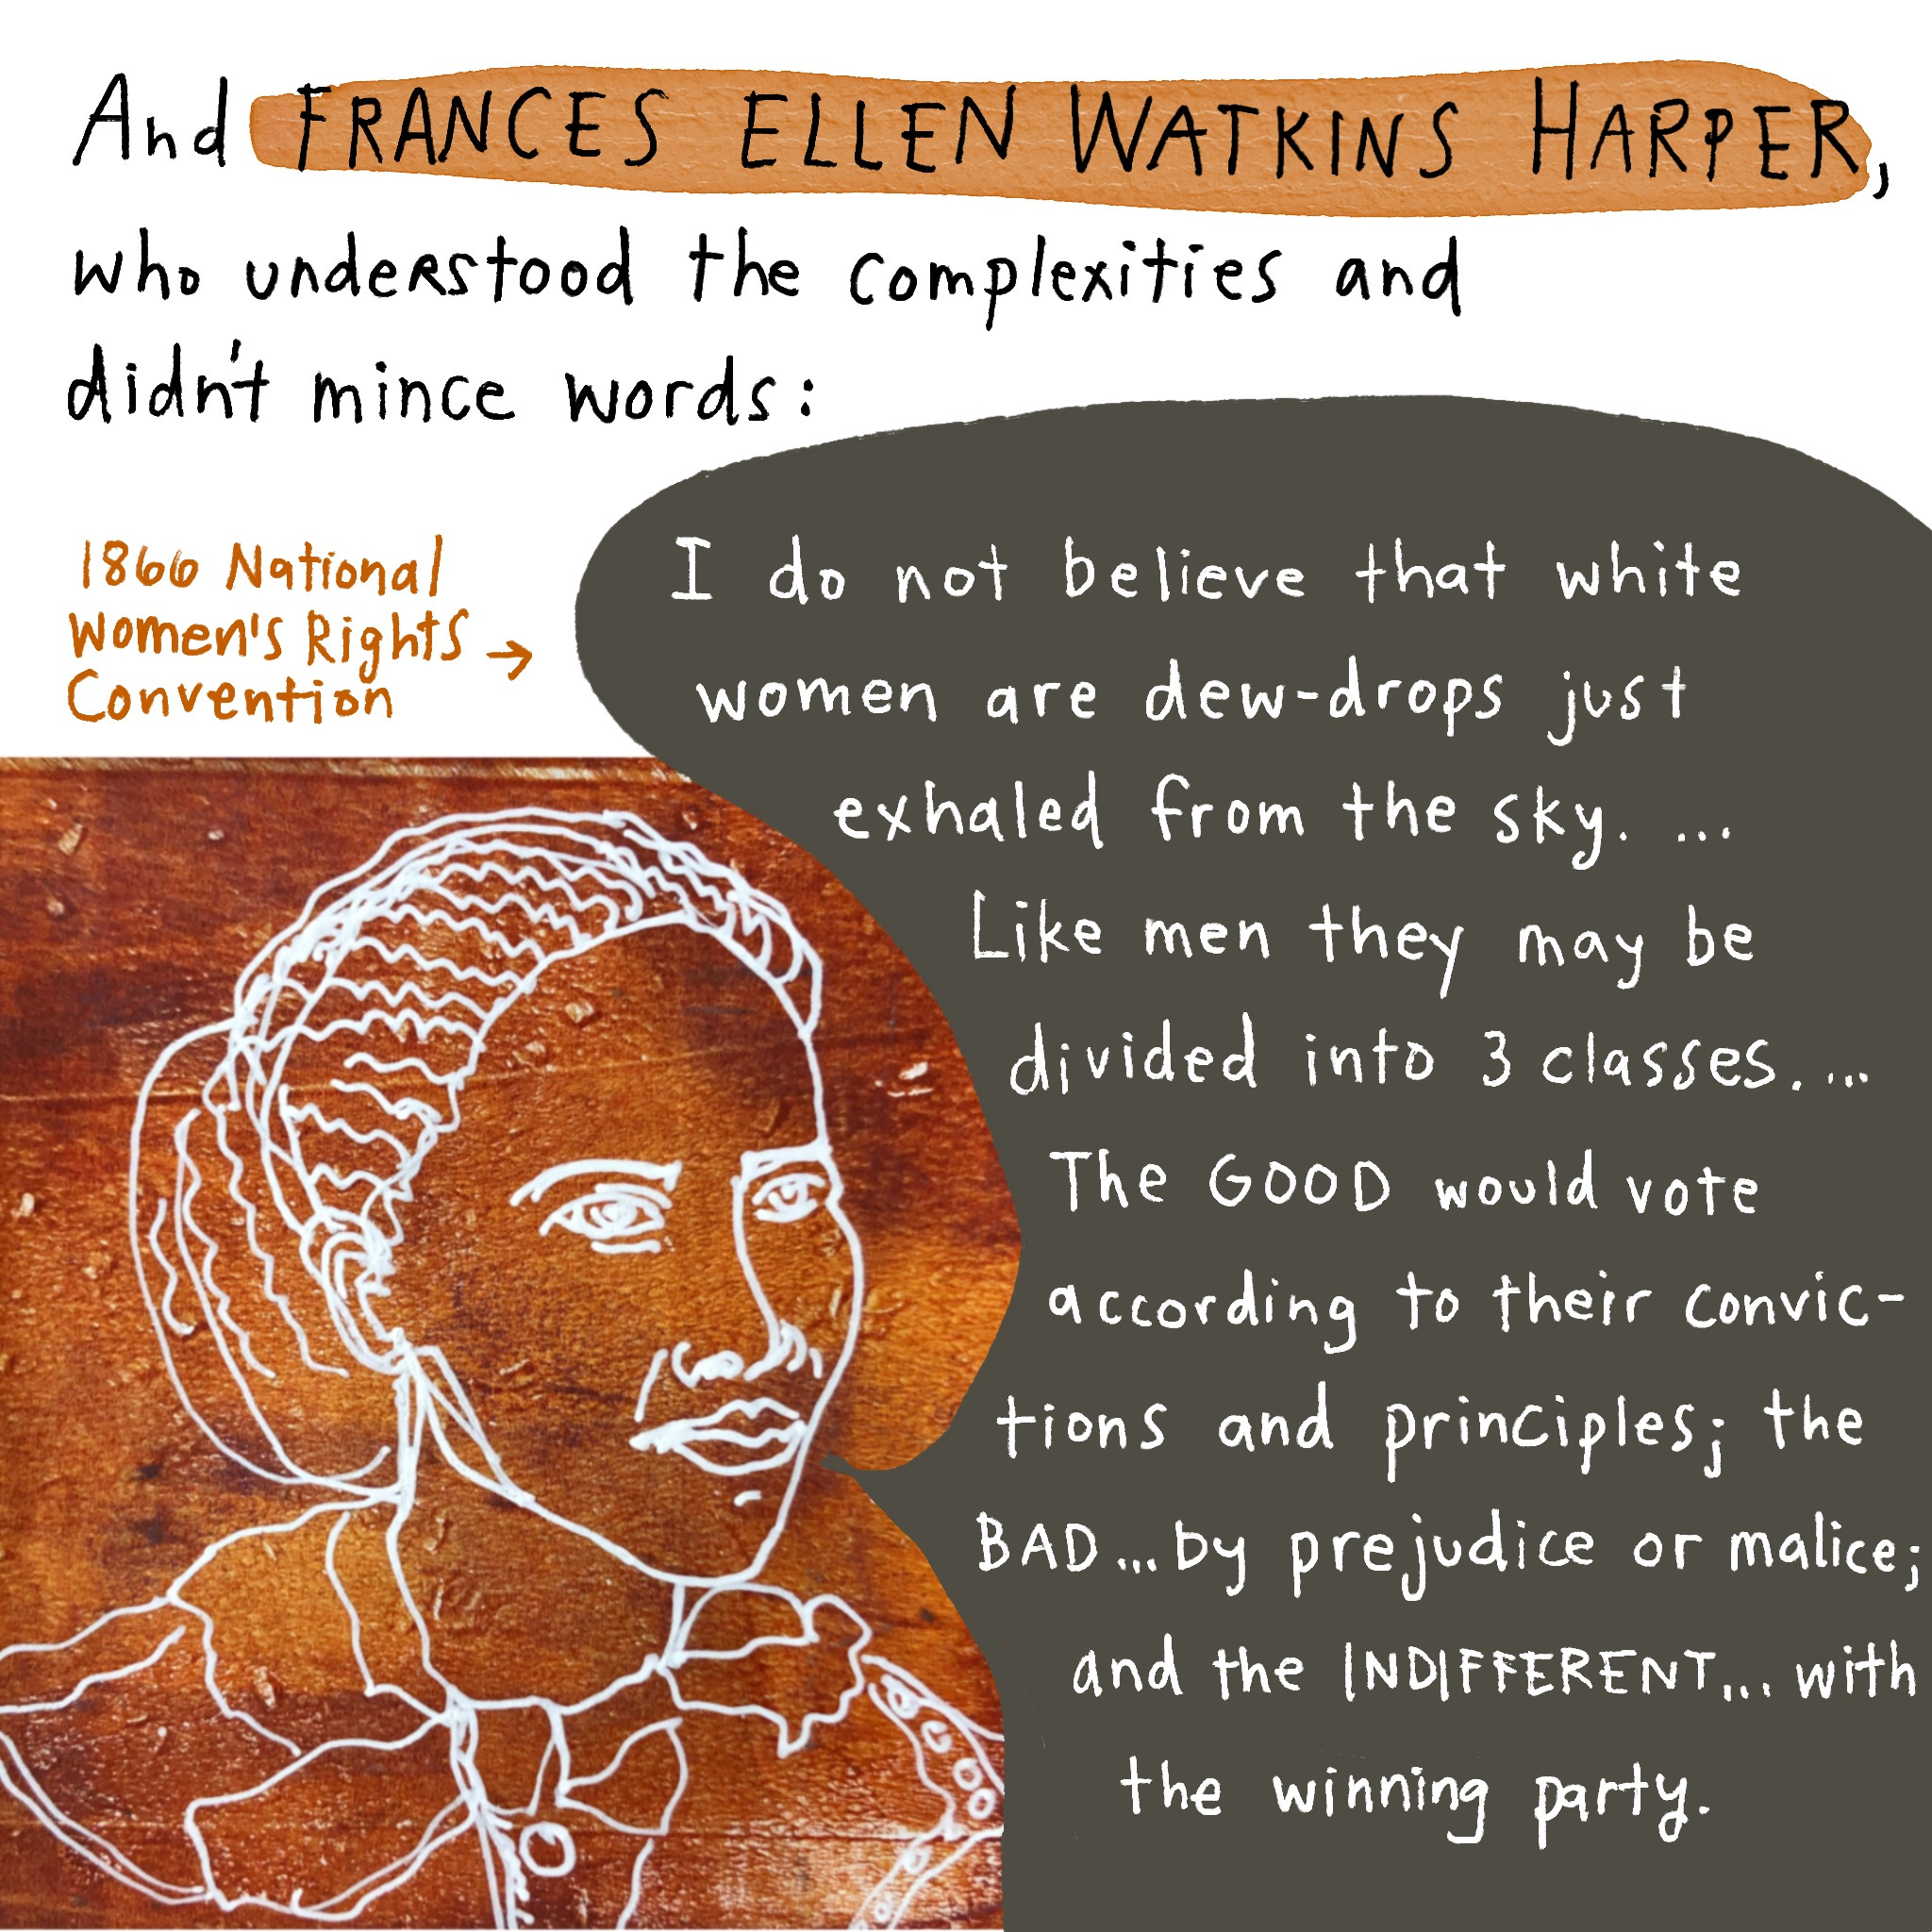 And FRANCES ELLEN WATKINS HARPER,
who understood the complexities and
didn't mince words:
1866 National
Women's Rights →
Convention
I do not believe that white
women are dew-drops just
exhaled from the sky. ...
Like men they may be
divided into 3 classes. ...
The GOOD would vote
according to their convic-
tions and principles; the
BAD ... by prejudice or malice;
and the INDIFFERENT ... with
the winning party.